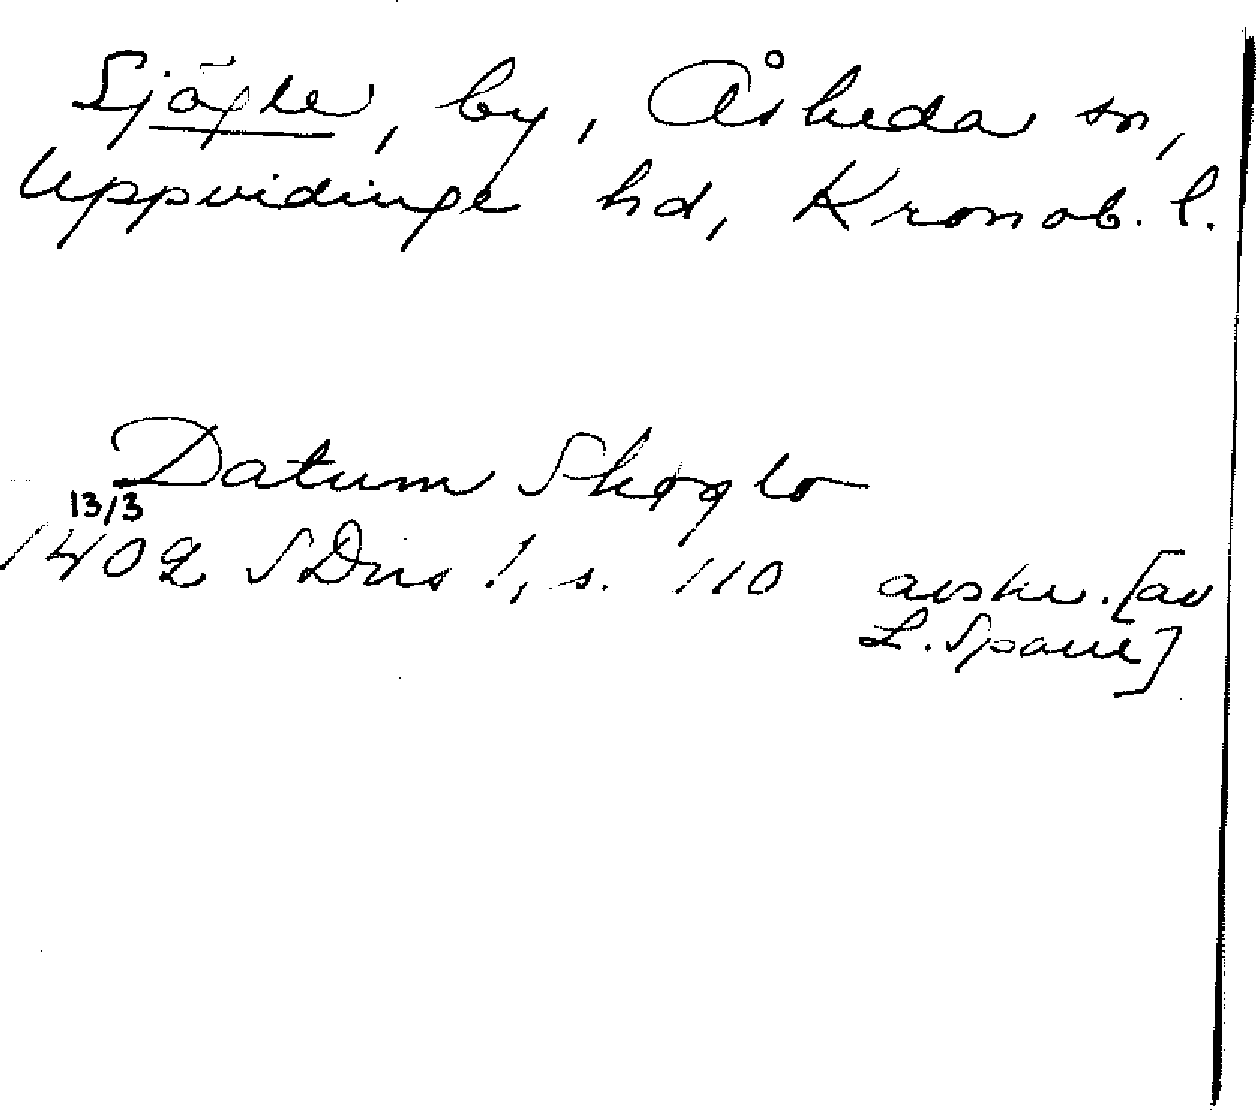 Sjögle, by, Åsheda sn,
Uppvidinge hd, Kronob. l.
Datum Skoglo
13/3
1402 SDns 1, s. 110 avskr. [av
L. Spane]